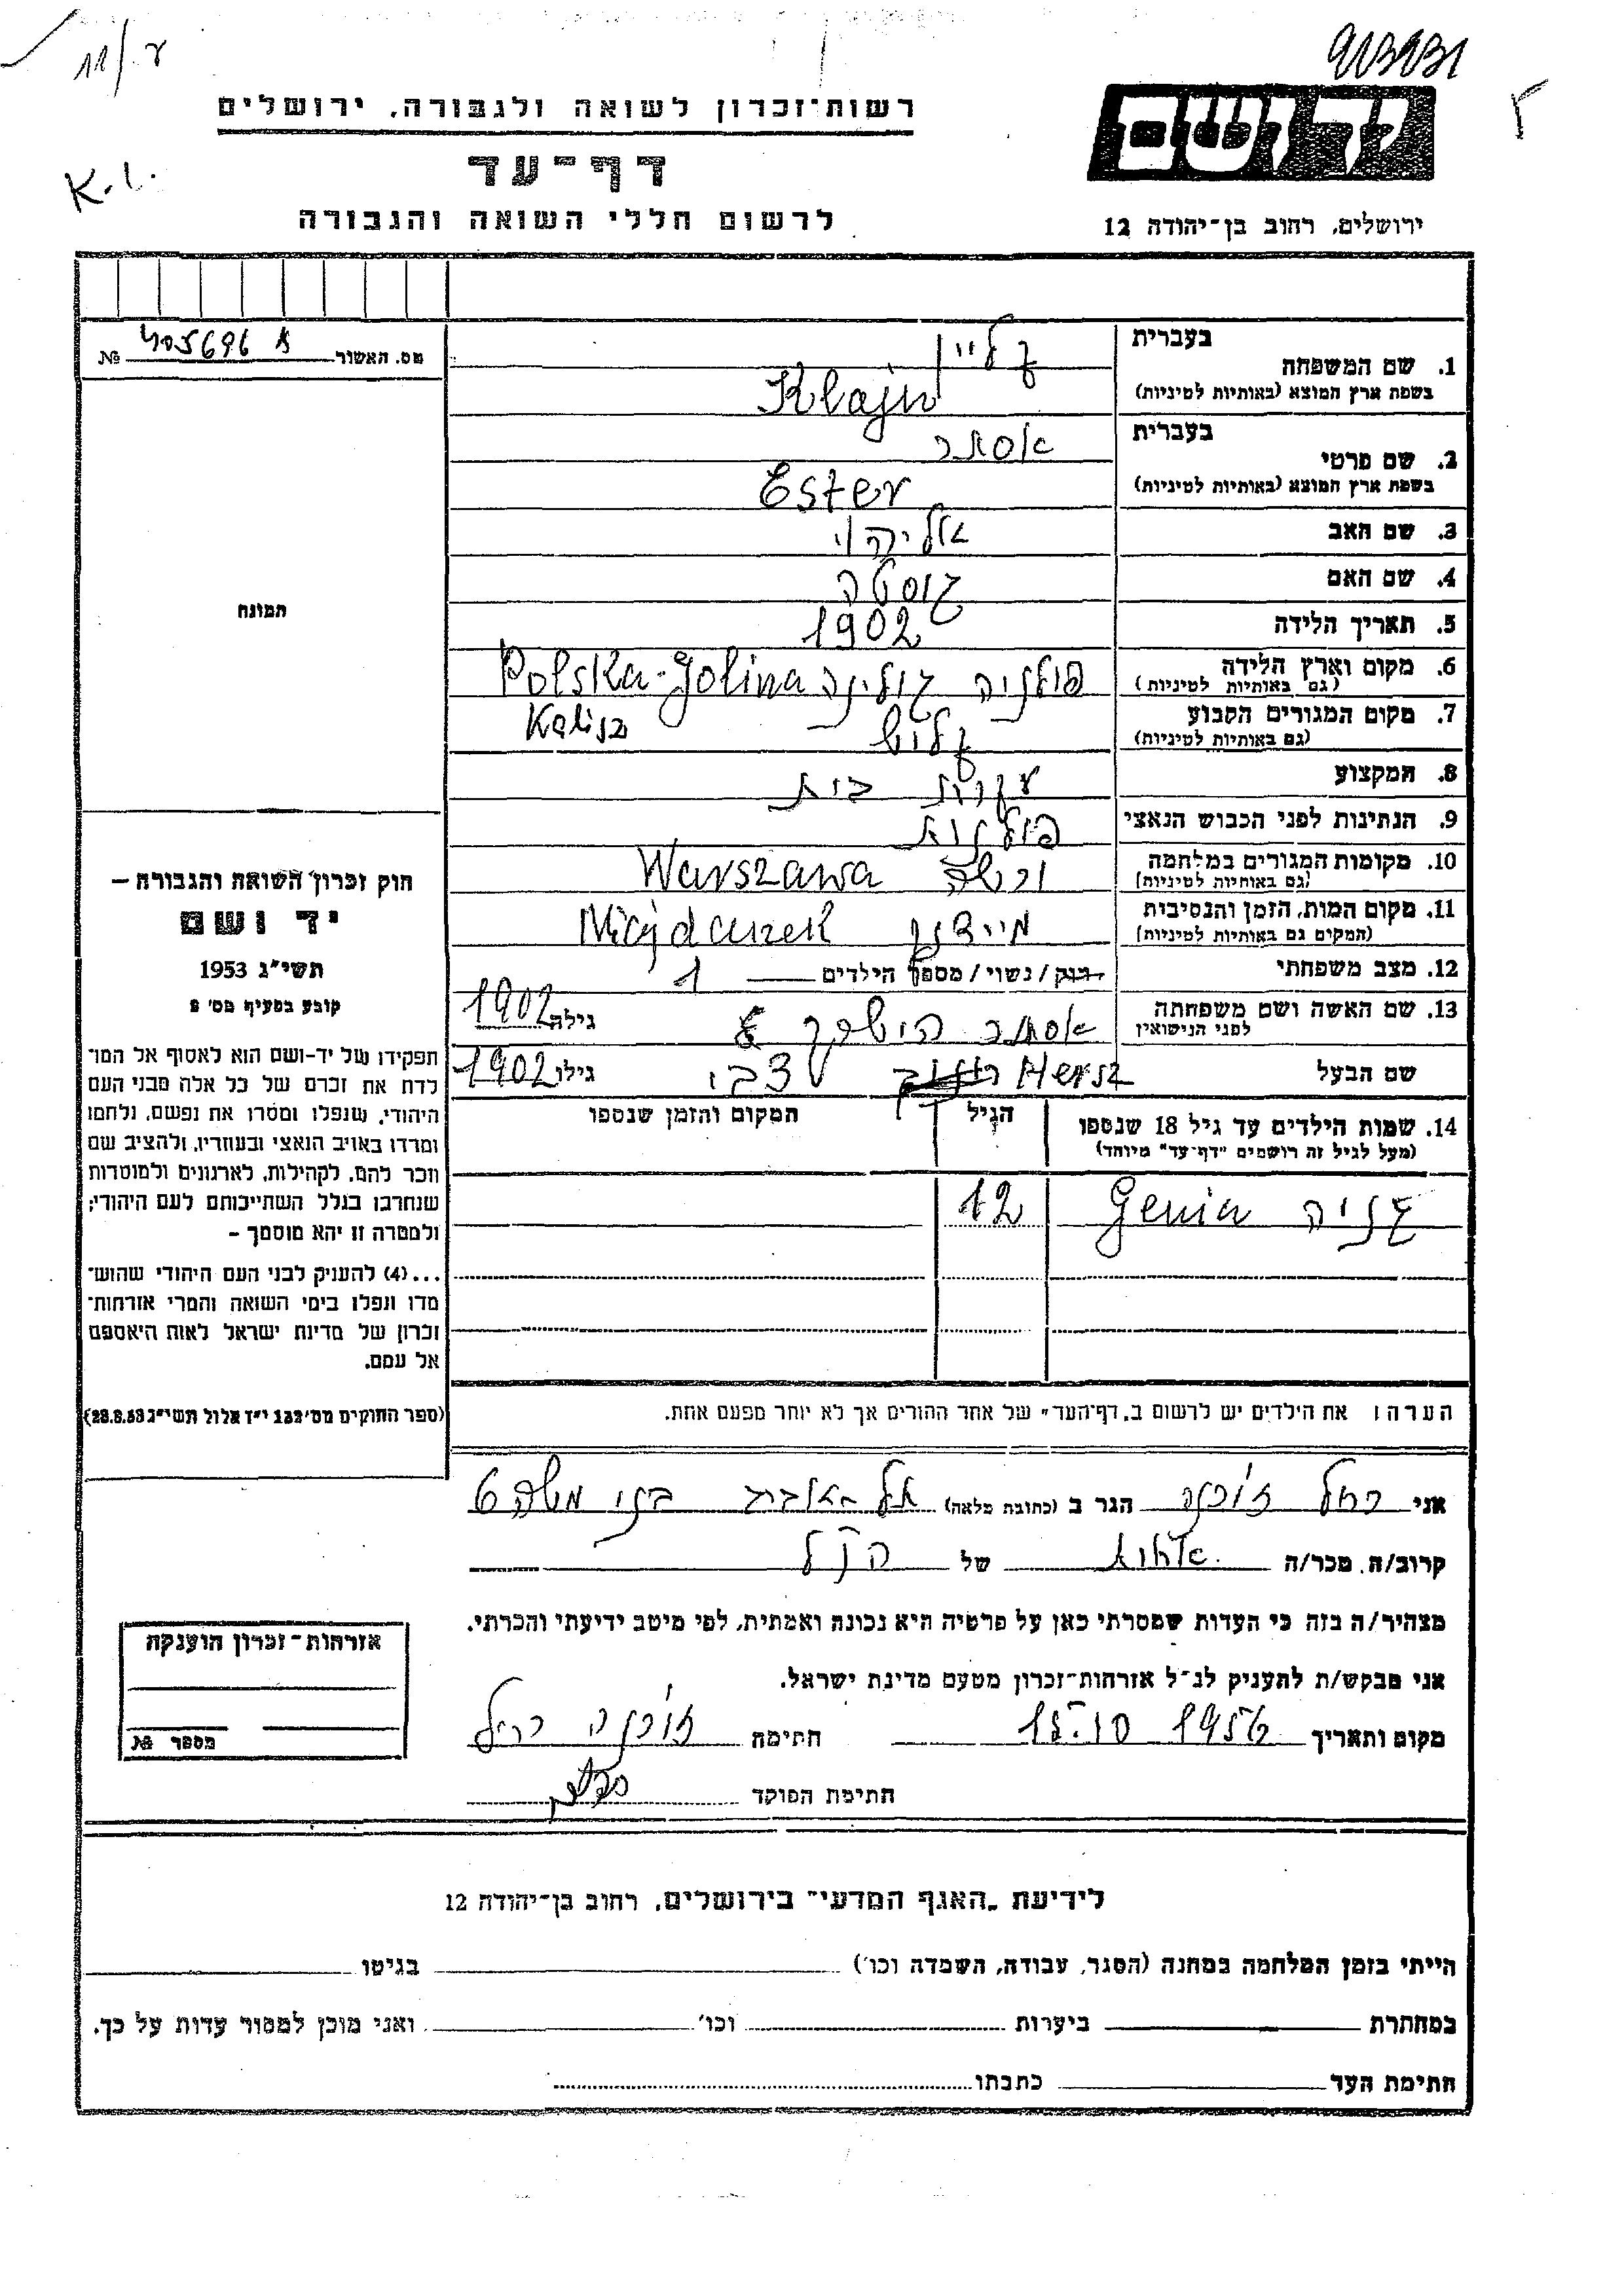 רשות־זכרון לשואה ולגבורה, ירושלים
דף־עד
לרשום חללי השואה והגבורה
K.L.
יד ושם
ירושלים, רחוב בן־יהודה 12
מס. האשור 405696 №
בעברית
1. שם המשפחה קליין
בשפת ארץ המוצא (באותיות לטיניות) Klajn
בעברית
2. שם פרטי אסתר
בשפת ארץ המוצא (באותיות לטיניות) Ester
3. שם האב
4. שם האם גוסטה
5. תאריך הלידה 1902
6. מקום וארץ הלידה פולניה גולינה Polska-Golina
(גם באותיות לטיניות)
7. מקום המגורים הקבוע קליש Kalisz
(גם באותיות לטיניות)
8. המקצוע עקרת בית
9. הנתינות לפני הכבוש הנאצי פולנית
10. מקומות המגורים במלחמה ורשה Warszawa
(גם באותיות לטיניות)
11. מקום המות, הזמן והנסיבות מיידנק Majdanek
(המקום גם באותיות לטיניות)
12. מצב משפחתי רווק/נשוי/מספר הילדים 1
13. שם האשה ושם משפחתה אסתר גילה 1902
לפני הנישואין
שם הבעל Hersz צבי גילו 1902
14. שמות הילדים עד גיל 18 שנספו הגיל המקום והזמן שנספו
(מעל לגיל זה רושמים "דף־עד" מיוחד)
גניה Genia 12
הערה: את הילדים יש לרשום ב„דף־העד" של אחד ההורים אך לא יותר מפעם אחת.
תמונה
חוק זכרון השואה והגבורה –
יד ושם
תשי"ג 1953
קובע בסעיף מס' 2
תפקידו של יד-ושם הוא לאסוף אל המו־
לדת את זכרם של כל אלה מבני העם
היהודי, שנפלו ומסרו את נפשם, נלחמו
ומרדו באויב הנאצי ובעוזריו, ולהציב שם
וזכר להם, לקהילות, לארגונים ולמוסדות
שנחרבו בגלל השתייכותם לעם היהודי;
ולמטרה זו יהא מוסמך –
...(4) להעניק לבני העם היהודי שהוש־
מדו ונפלו בימי השואה והמרי אזרחות־
זכרון של מדינת ישראל לאות היאספם
אל עמם.
(ספר החוקים מס' 132 י"ז אלול תשי"ג 28.8.53)
אני רחל הגר ב (כתובת מלאה) תל אביב בני משה 6
קרוב/ה. מכר/ה אחות של הנ"ל
מצהיר/ה בזה כי העדות שמסרתי כאן על פרטיה היא נכונה ואמתית, לפי מיטב ידיעתי והכרתי.
אני מבקש/ת להעניק לנ"ל אזרחות־זכרון מטעם מדינת ישראל.
מקום ותאריך 1956 חתימה רחל
חתימת הפוקד
אזרחות־זכרון הוענקה
מספר №
לידיעת „האגף המדעי" בירושלים, רחוב בן־יהודה 12
הייתי בזמן המלחמה במחנה (הסגר, עבודה, השמדה וכו') בגיטו
במחתרת ביערות וכו' ואני מוכן למסור עדות על כך.
חתימת העד כתבתו